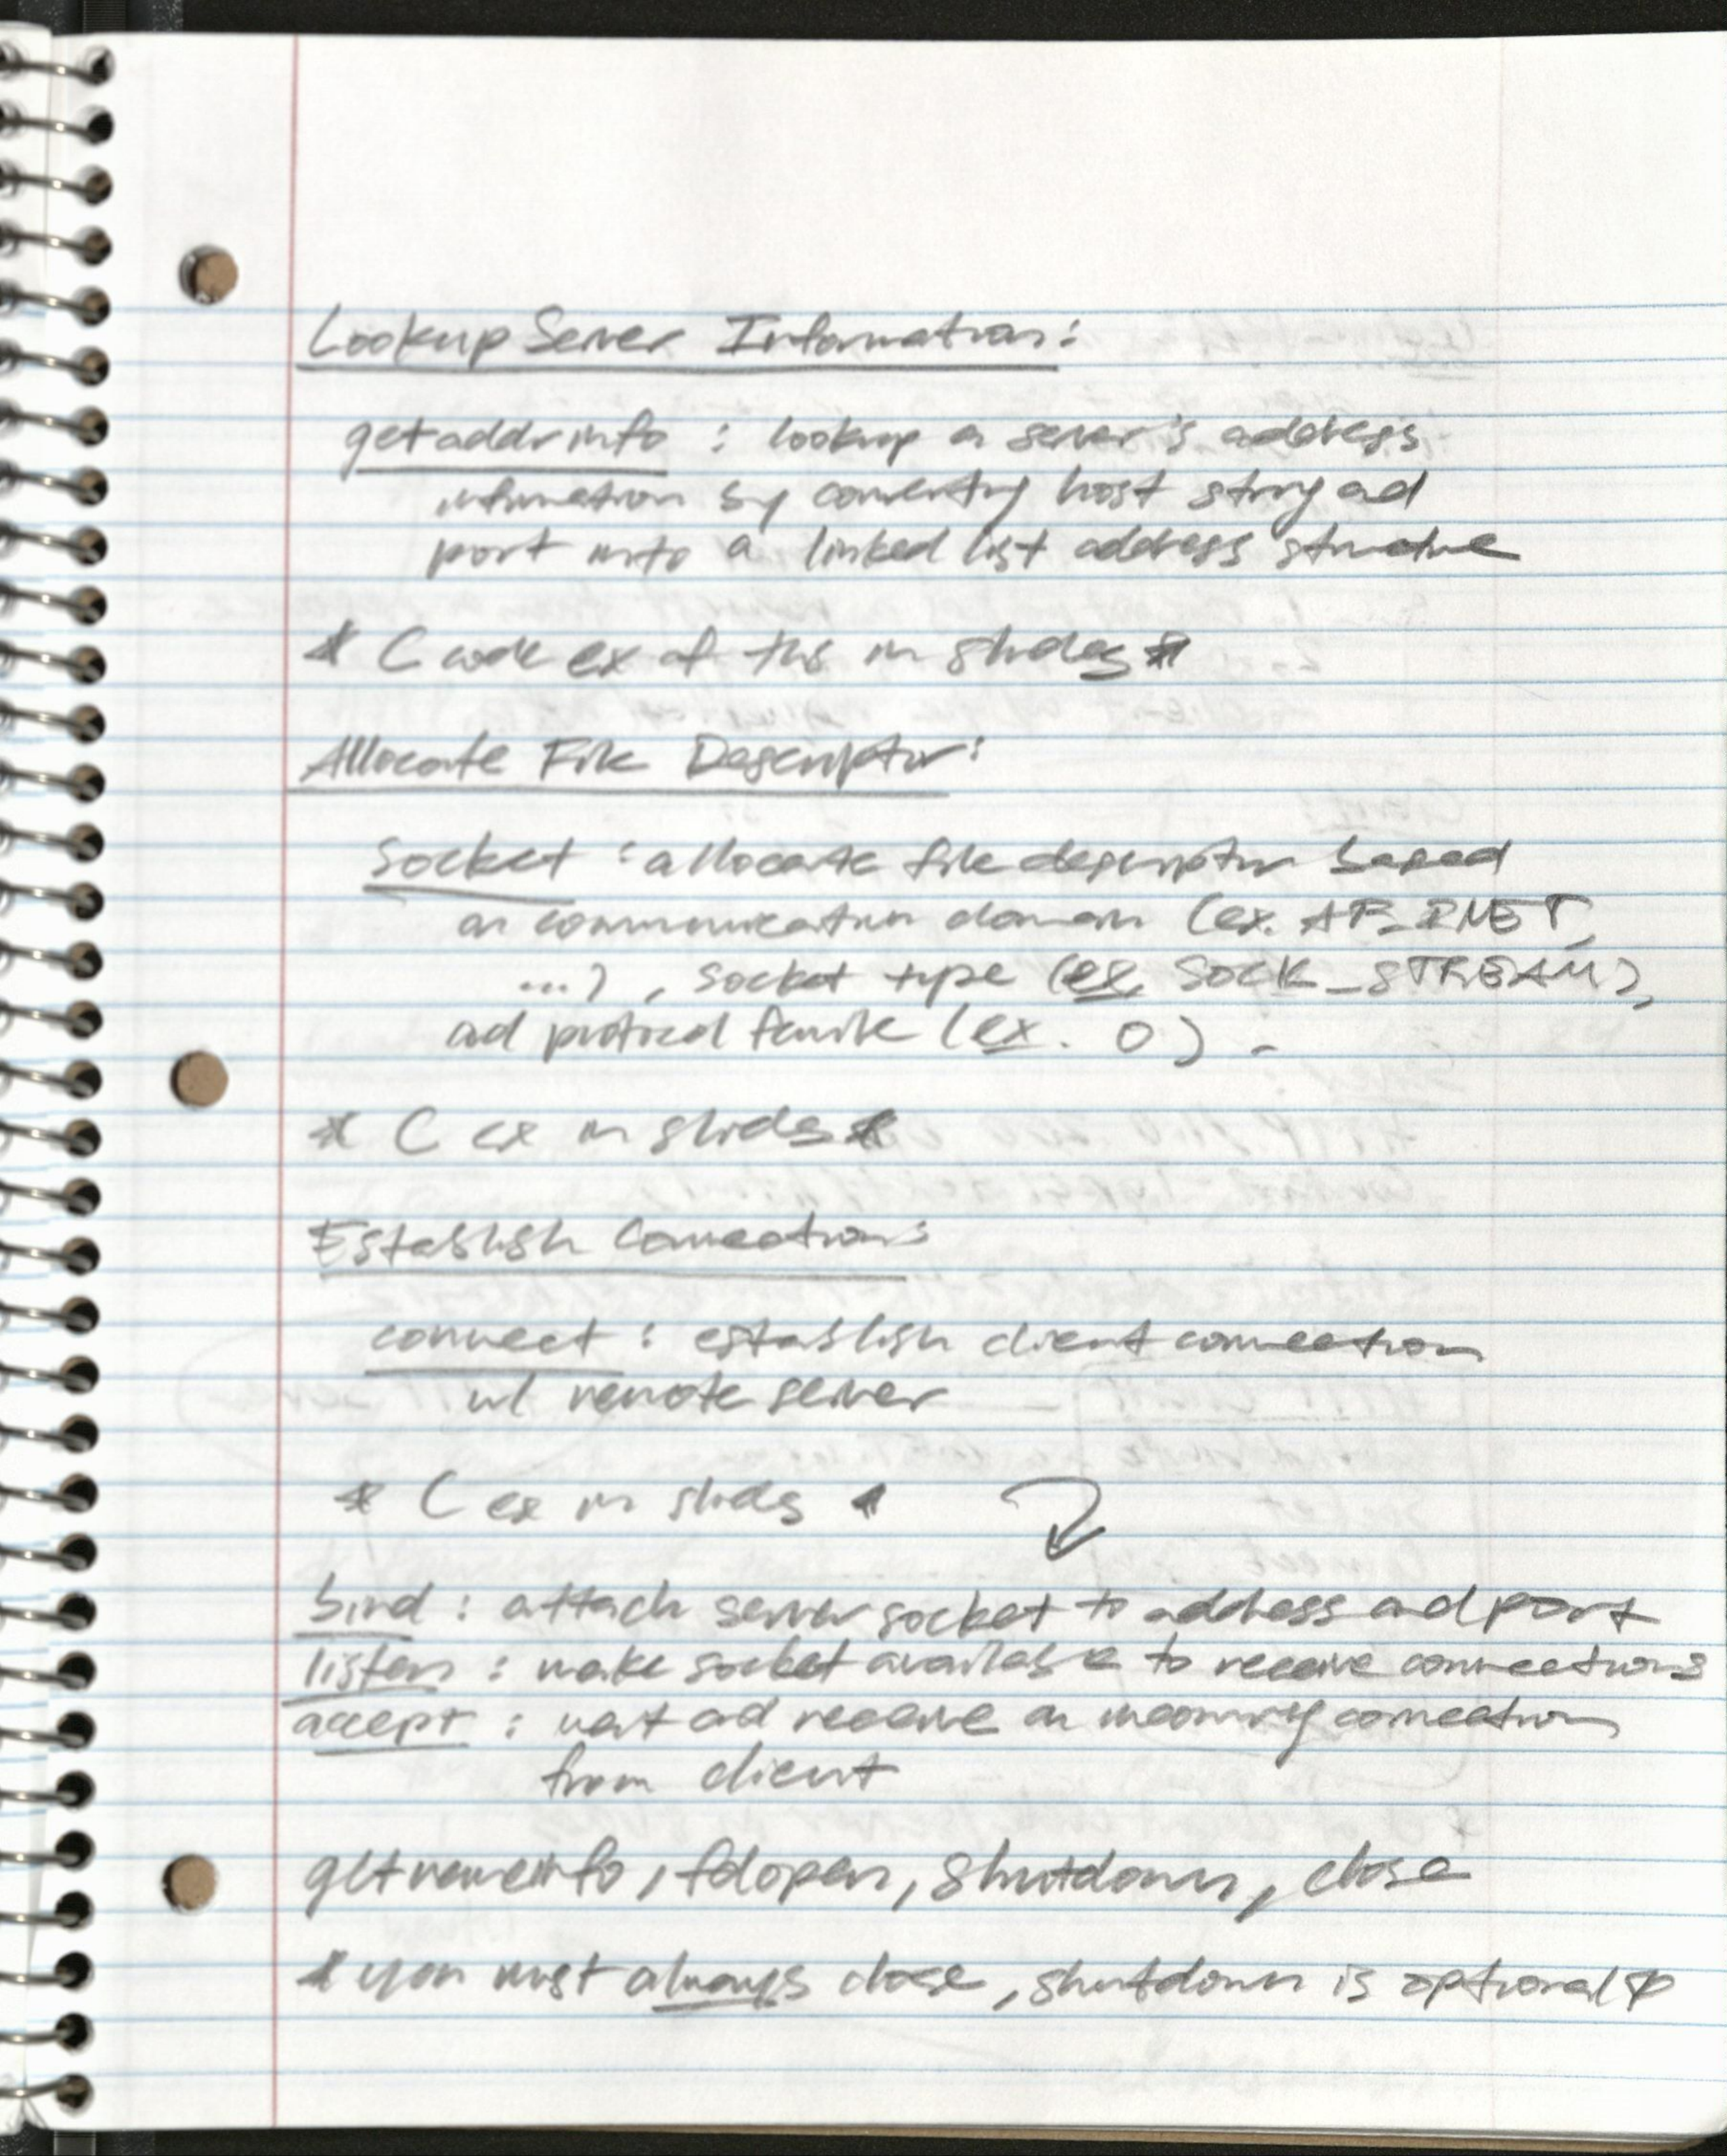 Lookup Server Information:
getaddrinfo : lookup a server's address
information by converting host string and
port into a linked list address structure
* C code ex of this in slides *
Allocate File Descriptor:
socket : allocate file descriptor based
on communication domain (ex. AF_INET,
...), socket type (ex. SOCK_STREAM),
ad protocol (ex. 0).
* C ex in slides *
Establish Connection:
connect : establish client connection
w/ remote server
* C ex in slides *
bind : attach server socket to address ad port
listen : make socket available to receive connections
accept : wait ad receive an incoming connection
from client
getnameinfo, fdopen, shutdown, close
* you must always close, shutdown is optional *